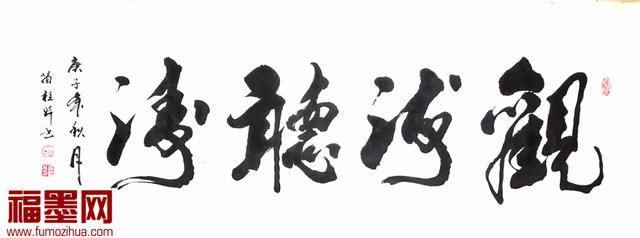 觀海聽濤
庚子年秋月
福墨网
www.fumozihua.com